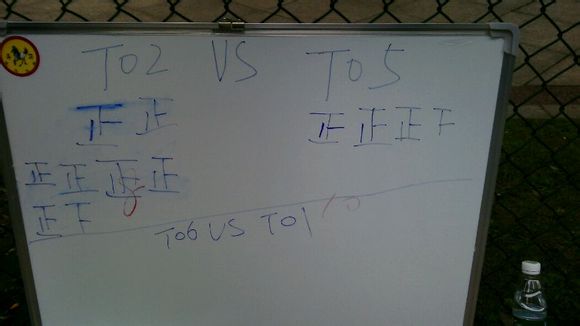 T02 VS T05
正 正 正 正 正
正 正 正 正
正
T06 VS T01